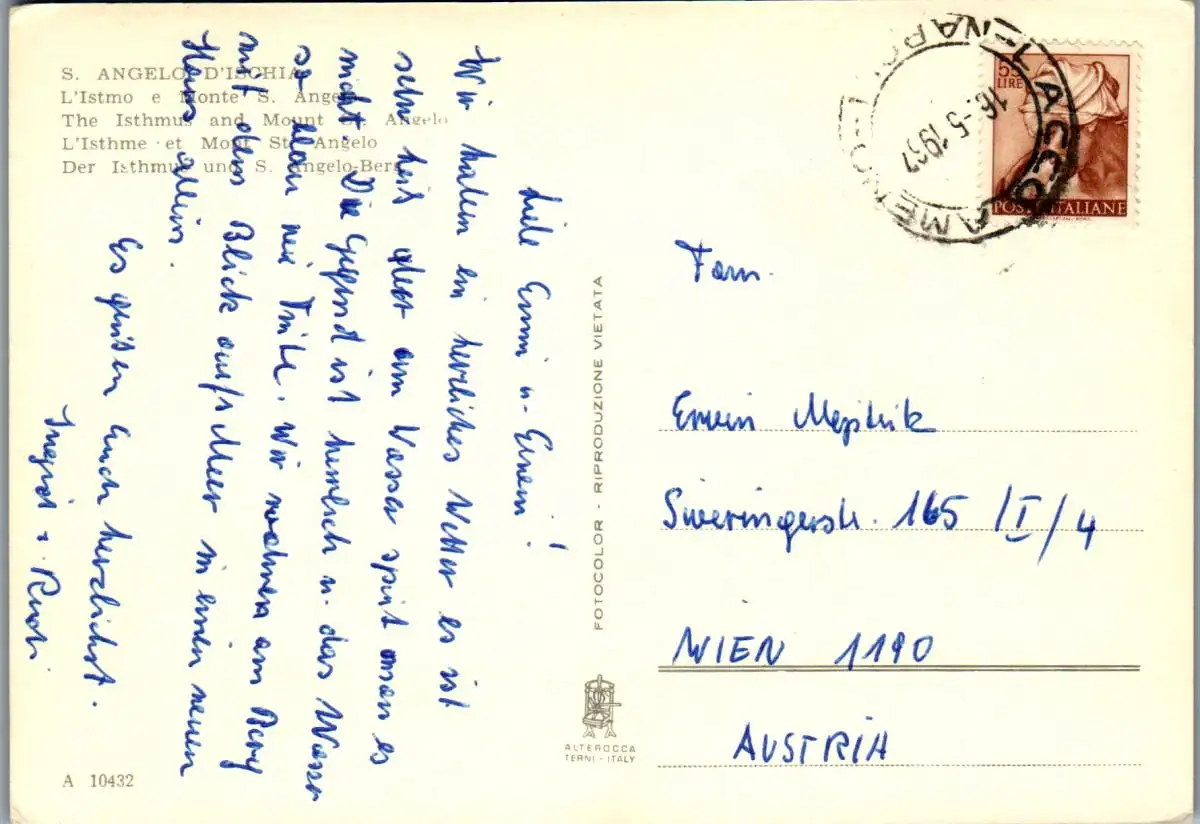 S. ANGELO D'ISCHIA
L'Istmo e Monte S. Angelo
The Isthmus and Mount St. Angelo
L'Isthme et Mont St. Angelo
Der Isthmus und S. Angelo-Berg
Liebe Emmi u. Erwin!
Wir haben ein herrliches Wetter es ist
sehr heiß aber am Wasser spürt man es
nicht. Die Gegend ist herrlich u. das Wasser
so klar wie Tinte. Wir wohnen am Berg
mit dem Blick aufs Meer in einen neuen
Haus allein.
Es grüßen Euch herzlichst.
Ingrid u. Rudi
A 10432
FOTOCOLOR - RIPRODUZIONE VIETATA
ALTEROCCA
TERNI - ITALY
55
LIRE
POSTE ITALIANE
LACCO AMENO
16.-5.1967
Fam.
Erwin
Sieveringerstr. 165 /I/4
WIEN 1190
AUSTRIA